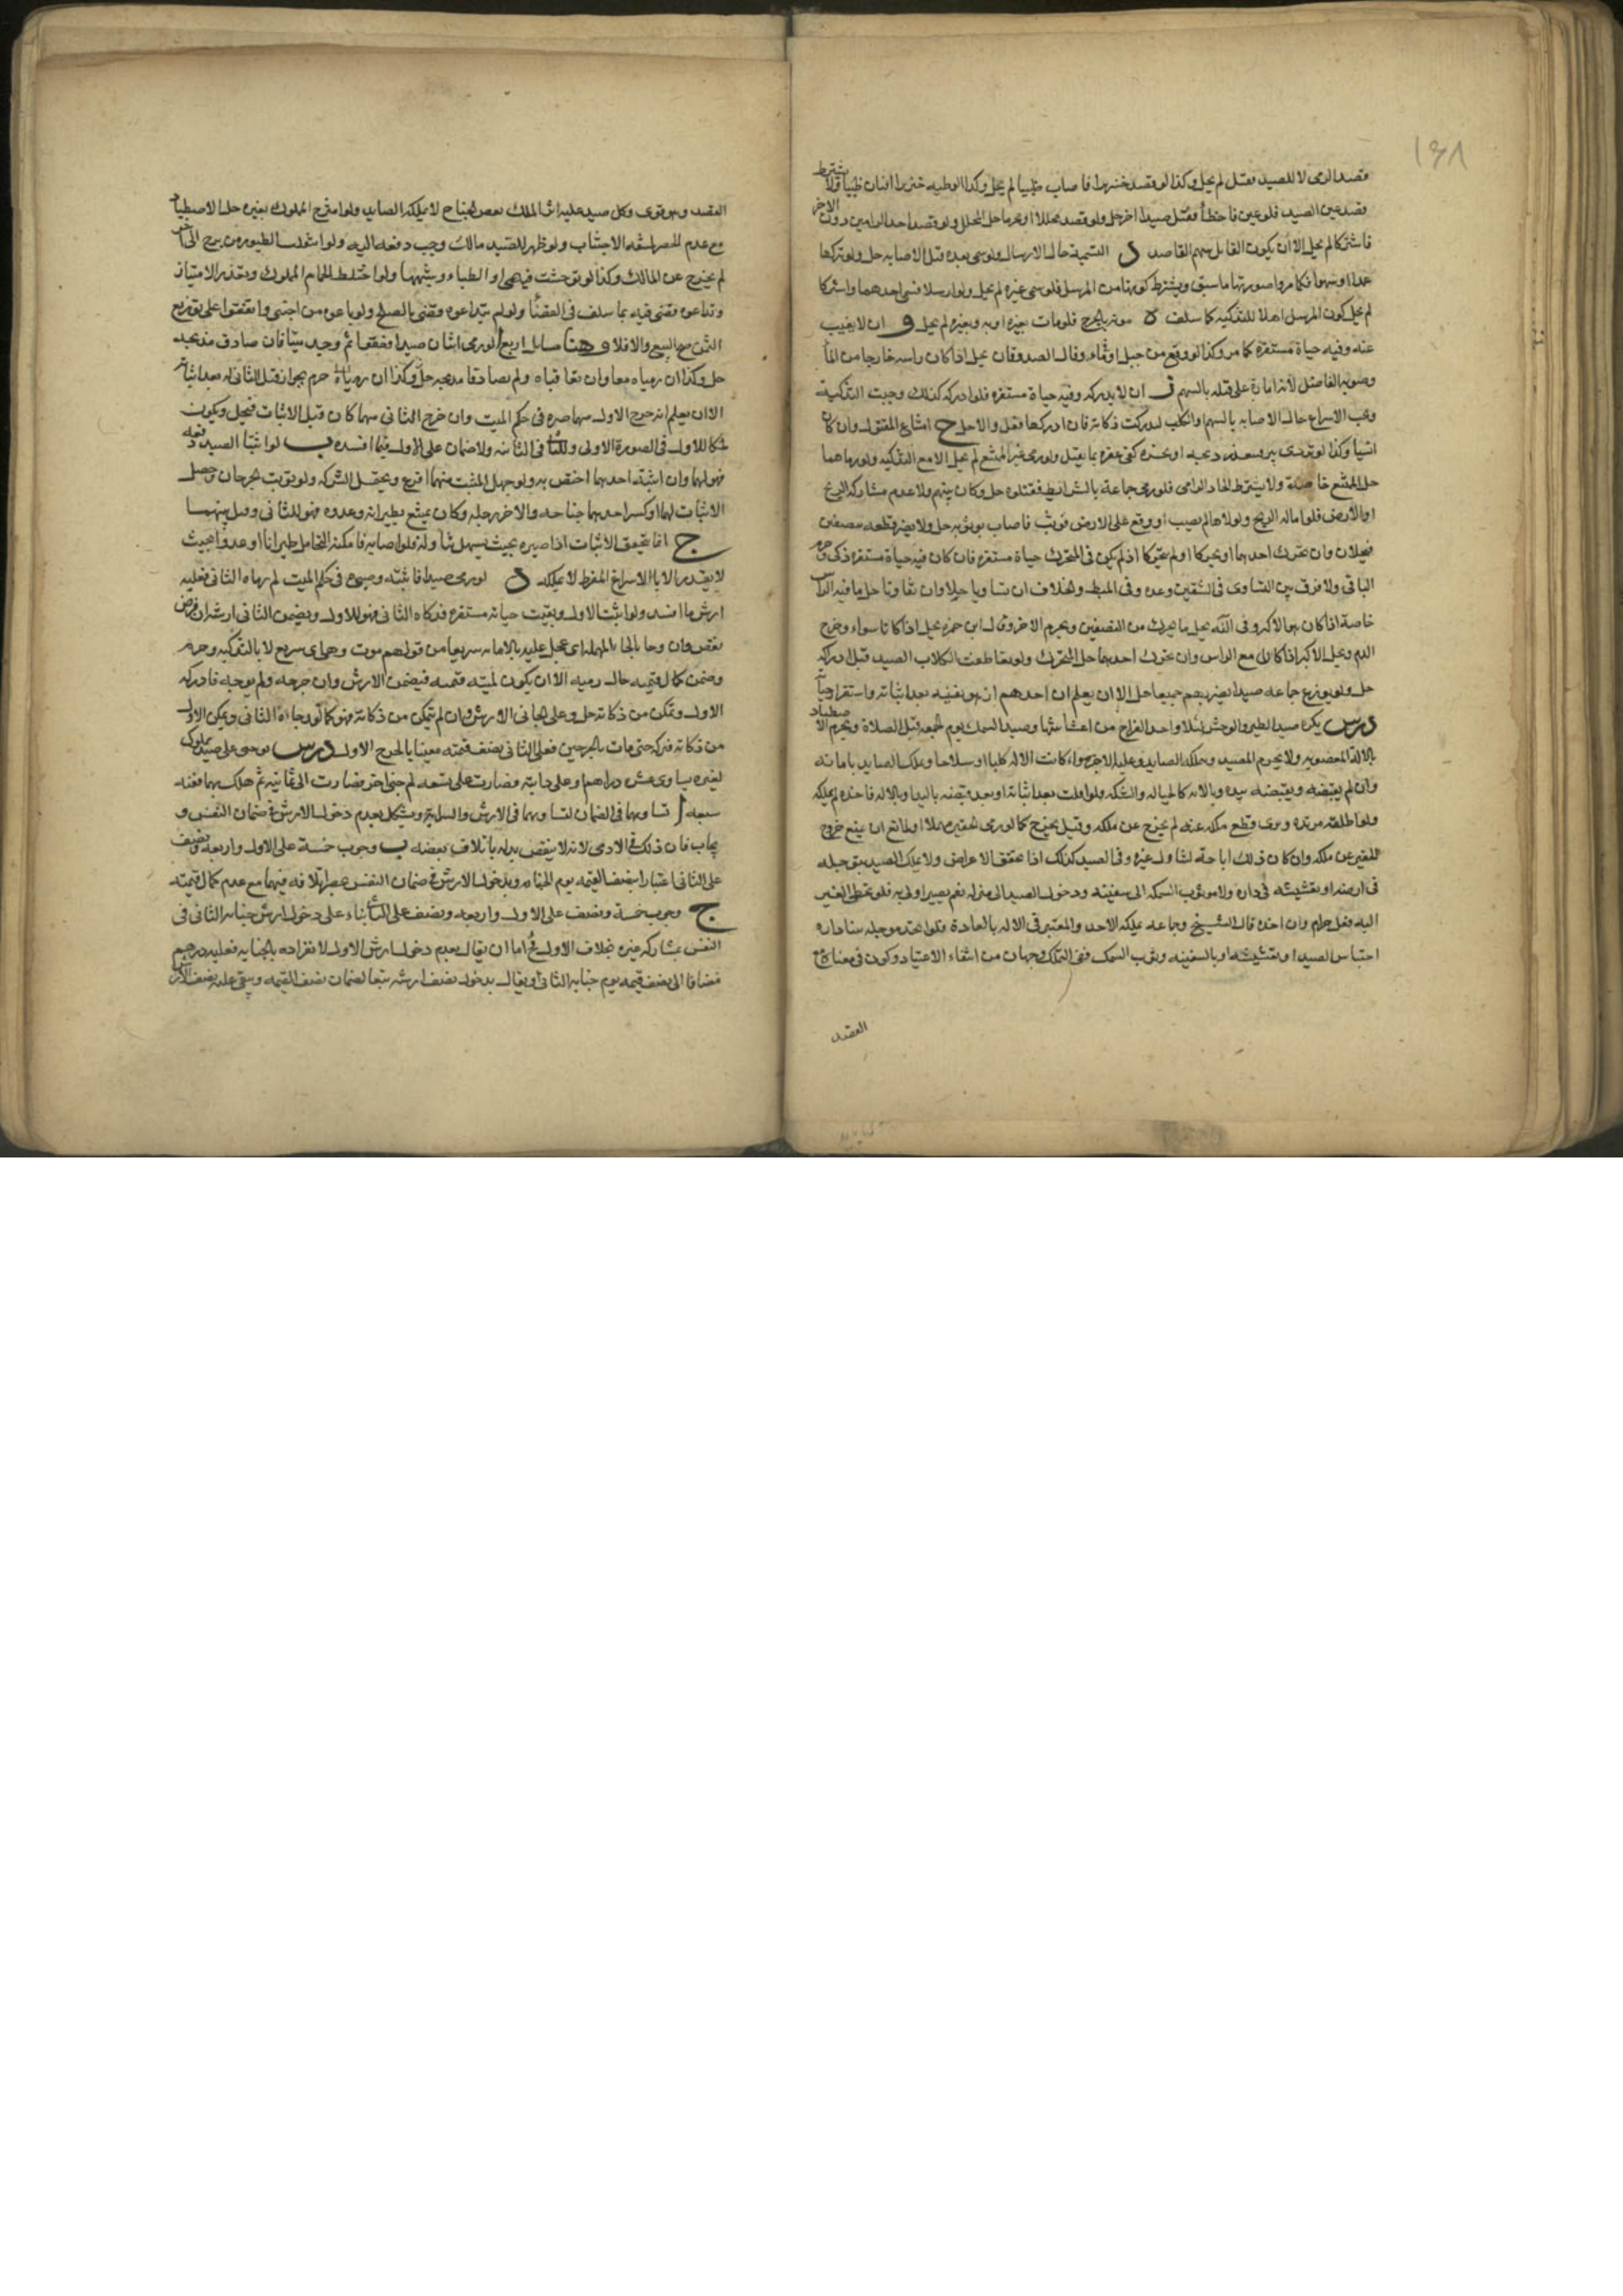 ١٣٨
قصد الرمى لا للصيد فقتل لم يحل وكذا لو قصد خنزيرا فاصاب ظبيا لم يحل وكذا لو ظنه خنزيرا فبان ظبيا ولا يشترط
قصد عين الصيد فلو عين فاخطأ فقتل صيدا اخر حل ولو قصد محللا ومحرما حل المحلل ولو قصد احد الراميين دون الاخر
فاشتركا لم يحل الا ان يكون القاتل سهم القاصد د التسمية حال الارسال ولو سمى بعده قبل الاصابه حل ولو تركها
عمدا او سهوا فكما مر وصورتها ما سبق ويشترط كونها من المرسل فلو سمى غيره لم يحل ولو ارسلا فسمى احدهما واشتركا
لم يحل كون المرسل اهلا للتذكيه كما سلف ه موته بالجرح فلو مات بغيره او به وبغيره لم يحل و ان لا يغيب
عنه وفيه حياة مستقرة كما مر وكذا لو وقع من جبل او فى ماء وقال الصدوقان يحل اذا كان راسه خارجا من الماء
وصوبه الفاضل لانه امارة على قتله بالسهم ز ان لا يدركه وفيه حياة مستقره فلو ادركه كذلك وجبت التذكية
ويجب الاسراع حال الاصابه بالسهم او الكلب ليدرك ذكاته فان ادركها فعل والا حل ح امتناع المقتول وان كان
انسيا وكذا لو تردى بير فتعذر ذبحه او نحره كفى عقره بما يقتل ولو رمى غير الممتنع لم يحل الا مع التذكيه ولو رماهما
حل الممتنع خاصة ولا يشترط اتحاد الرامى فلو رمى جماعة بالشرائط فقتلوه حل وكان بينهم ولا عدم مشاركة الريح
او الارض فلو اماله الريح ولولاها لم يصب او وقع على الارض فوثب فاصاب بوثوبه حل ولا يضر قطعه نصفين
فيحلان وان تحرك احدهما او تحركا او لم يتحركا اذ لم يكن فى المتحرك حياة مستقره فان كان فيه حياة مستقره ذكى وحرم
الباقى ولا فرق بين التساوى فى الشقين وعدمه وفى المبسوط والخلاف ان تساويا حلا وان تفاوتا حل ما فيه الراس
خاصة اذا كان هو الاكبر وفى النهايه يحل ما تحرك من النصفين ويحرم الاخر وقال ابن حمزه يحل اذا كانا سواء وخرج
الدم ويحل الاكبر اذا كان مع الراس وان تحرك احدهما حل المتحرك ولو تقاطعت الكلاب الصيد قبل ادراكه
حل ولو توزع جماعه صيدا بضربهم جميعا حل الا ان يعلم ان احدهم ازهق نفسه بعد اثباته واستقرار حياته
درس يكره صيد الطير والوحش ليلا واخذ الفراخ من اعشاشها وصيد السمك يوم الجمعه قبل الصلاة ويحرم الاصطياد
بالالة المغصوبه ولا يحرم المصيد ويملكه الصايد وعليه الاجره سواء كانت الاله كلبا او سلاحا ويملك الصايد باثباته
وان لم يقبضه وبقبضه بيده وبالاله كالحباله والشبكه ولو افلت بعد اثباته او بعد قبضه باليد او بالاله فاخذه لم يملكه
ولو اطلقه من يده ونوى قطع ملكه عنه لم يخرج عن ملكه وقيل يخرج كما لو رمى الحقير مهملا او لمانع ان يمنع خروج
الحقير عن ملكه وان كان ذلك اباحة لتناول غيره وفى الصيد كذلك اذا تحقق الاعراض ولا يملك الصيد بتوحله
فى ارضه او تعشيشه فى داره ولا بوثوب السمكه الى سفينته ودخول الصيد الى منزله نعم يصير اولى به فلو تخطى الغير
اليه فعل حرام وان اخذه قال الشيخ وجماعه يملكه الاخذ والمعتبر فى الاله بالعادة فلو اتخذ موحله بناداره
احتباس الصيد او بتعشيشه او بالسفينه وثوب السمك ففى التملك وجهان من انتفاء الاعتياد وكون فى معناه مع
العقد
القصد وهو قوى وكل صيد عليه اثر الملك كقص الجناح لا يملكه الصايد ولو امتزج المملوك بغيره حل الاصطياد
مع عدم الحصر لمشقه الاجتناب ولو ظهر للصيد مالك وجب دفعه اليه ولو انتقلت الطيور من برج الى اخر
لم يخرج عن المالك وكذا لو توحشت فى الصحراء والظباء وشبهها ولو اختلط الحمام المملوك وتعذر الامتياز
وتداعوه قضى فيه بما سلف فى القضاء ولو لم يتداعوه وقضى بالصلح ولو باعوه من اجنبى واتفقوا على توزيع
الثمن صح البيع والا فلا وهنا مسايل اربع ا لو رمى اثنان صيدا فعقراه ثم وجد ميتا فان صادف مذبحه
حل وكذا ان رمياه معا وان تعاقباه ولم يصادفا مذبحه حل وكذا ان رمياه حرم لجواز قتل الثانى له بعد اثباته
الا ان يعلم ان جرح الاول مهما صيره فى حكم الميت وان خرج الثانى مهما كان قبل الاثبات فيحل ويكون
ملكا للاول فى الصورة الاولى وللثانى فى الثانيه ولا ضمان على الاول فيما افسده ب لو اثبتا الصيد دفعه
فهو لهما وان اثبته احدهما اختص به ولو جهل المثبت منهما اقرع ويحتمل الشركه ولو ترتبت الجرحان وحصل
الاثبات لهما او كسر احدهما جناحه والاخر رجله وكان يمتنع بطيرانه وعدوه فهو للثانى وقيل بينهما
ج انما يتحقق الاثبات اذا صيره بحيث يسهل تناوله فلو اصابه فامكنه التحامل طيرانا او عدوا بحيث
لا يقدر الا بالاسراع المفرط لا يملكه د لو رمى صيدا فاثبته وصيره فى حكم الميت ثم رماه الثانى فعليه
ارش ما افسد ولو اثبت الاول وبقيت حياته مستقره فذكاه الثانى فهو للاول ويضمن الثانى ارشه ان فرض
نقص وان وحا بالحاء المهمله اى عجل عليه بالاماته سريعا من قولهم موت وحى اى سريع لا بالتذكيه وحرم
وضمن كمال قيمته حال رميه الا ان يكون لميته قيمة فيضمن الارش وان جرحه ولم يوحه فادركه
الاول وتمكن من ذكاته حل وعلى الجانى الارش وان لم يتمكن من ذكاته فهو كما لو وحاه الثانى ويمكن الاول
من ذكاته فتركه حتى مات بالجرحين فعلى الثانى نصف قيمته معيبا بالجرح الاول درس لو جنى على صيد مملوك
لغيره يساوى عشره دراهم او على دابته فصارت على تسعه ثم جنى اخر فصارت الى ثمانيه ثم هلك بهما ففيه
سبعه ا تساويهما فى الضمان لتساويهما فى الارش والسرايه ويشكل بعدم دخول الارش فى ضمان النفس و
يجاب فان ذلك فى الادمى لانه لا ينقص بدله باتلاف بعضه ب وجوب خمسة على الاول واربعه ونصف
على الثانى اعتبارا بنصف القيمه يوم الجنايه وبدخول الارش فى ضمان النفس ويحصل اتلافه فيهما مع عدم كمال قيمته
ج وجوب خمسة ونصف على الاول واربعه ونصف على الثانى بناء على دخول ارش جنايه الثانى فى
النفس بمشاركه غيره بخلاف الاول فاما ان يقال بعدم دخول ارش الاول لانفراده بالجنايه فعليه درهم
مضافا الى نصف قيمه يوم جنايه الثانى او يقال بدخول نصف ارشه تبعا لضمان نصف القيمه ويبقى عليه نصف الارش